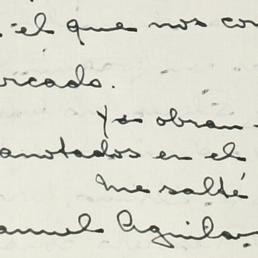 el que nos con
rcado.
Ya obran
anotados en el
Me salté
anuel Aguilar